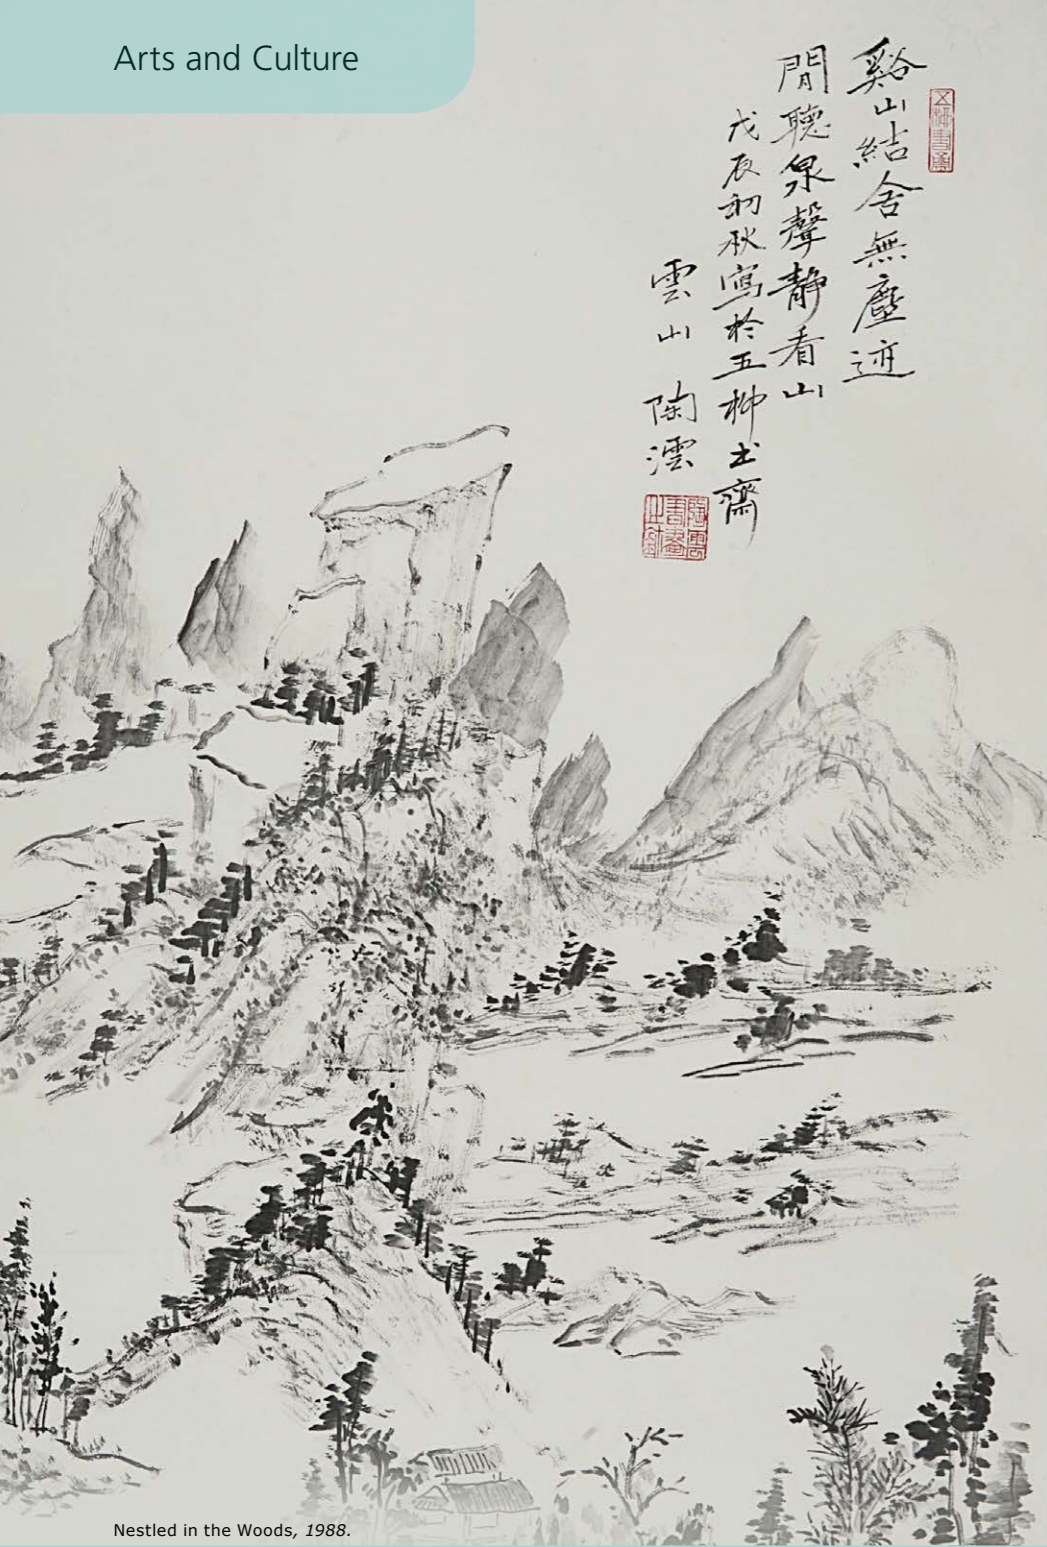 Arts and Culture
谿山結舍無塵迹
閒聽泉聲靜看山
戊辰初秋寫於五柳書齋
雲山 陶澐
Nestled in the Woods, 1988.